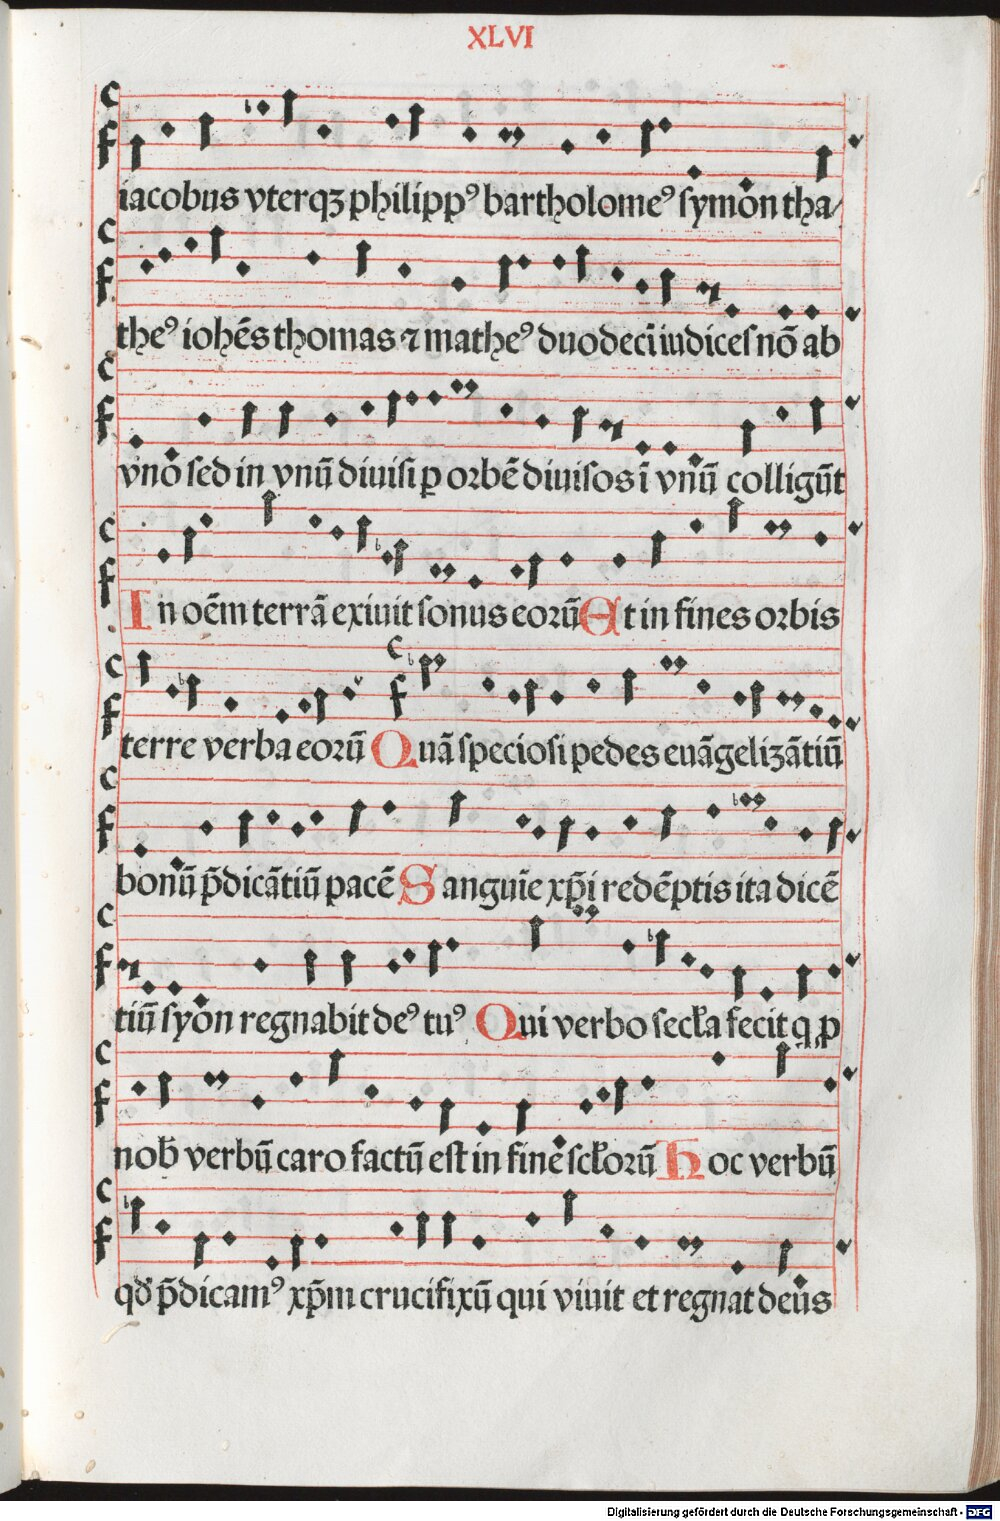 XLVI
iacobus vterqꝫ philippꝰ bartholomeꝰ symon tha/
theꝰ iohēs thomas ⁊ matheꝰ duodecī iudices nō ab
vno sed in vnū diuisi ꝑ orbē diuisos ī vnū colligūt
In oēm terrā exiuit sonus eorū Et in fines orbis
terre verba eorū Quā speciosi pedes euāgelizātiū
bonū p̄dicātiū pacē Sanguīe xp̄i redēptis ita dicē
tiū syon regnabit deꝰ tuꝰ Qui verbo secl̄a fecit q ꝓ
nob̄ verbū caro factū est in finē scl̄orū Hoc verbū
qd̄ p̄dicamꝰ xp̄m crucifixū qui viuit et regnat deus
Digitalisierung gefördert durch die Deutsche Forschungsgemeinschaft - DFG